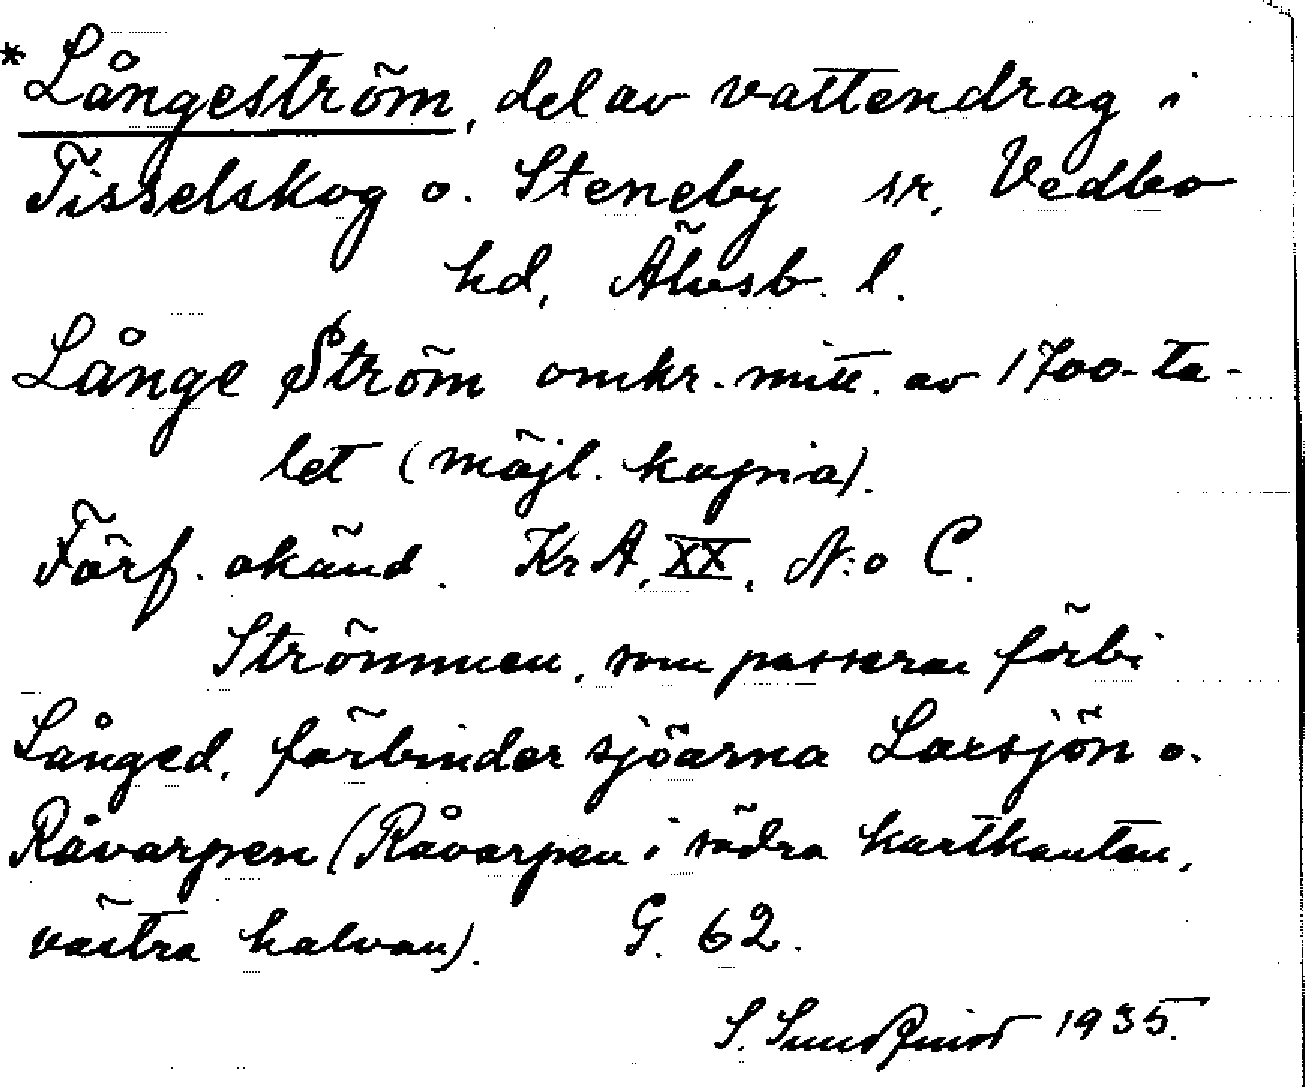 *Långeström, del av vattendrag i
Tisselskog o. Steneby sr, Vedbo
hd, Älvsb. l.
Långe Ström omkr. mitt. av 1700-ta-
let (möjl. kopia).
Förf. okänd. Kr A, XX, N:o C.
Strömmen, som passerar förbi
Långed, förbinder sjöarna Laxsjön o.
Råvarpen (Råvarpen i södra kartkanten,
västra halvan). G. 62.
S. Sundqvist 1935.